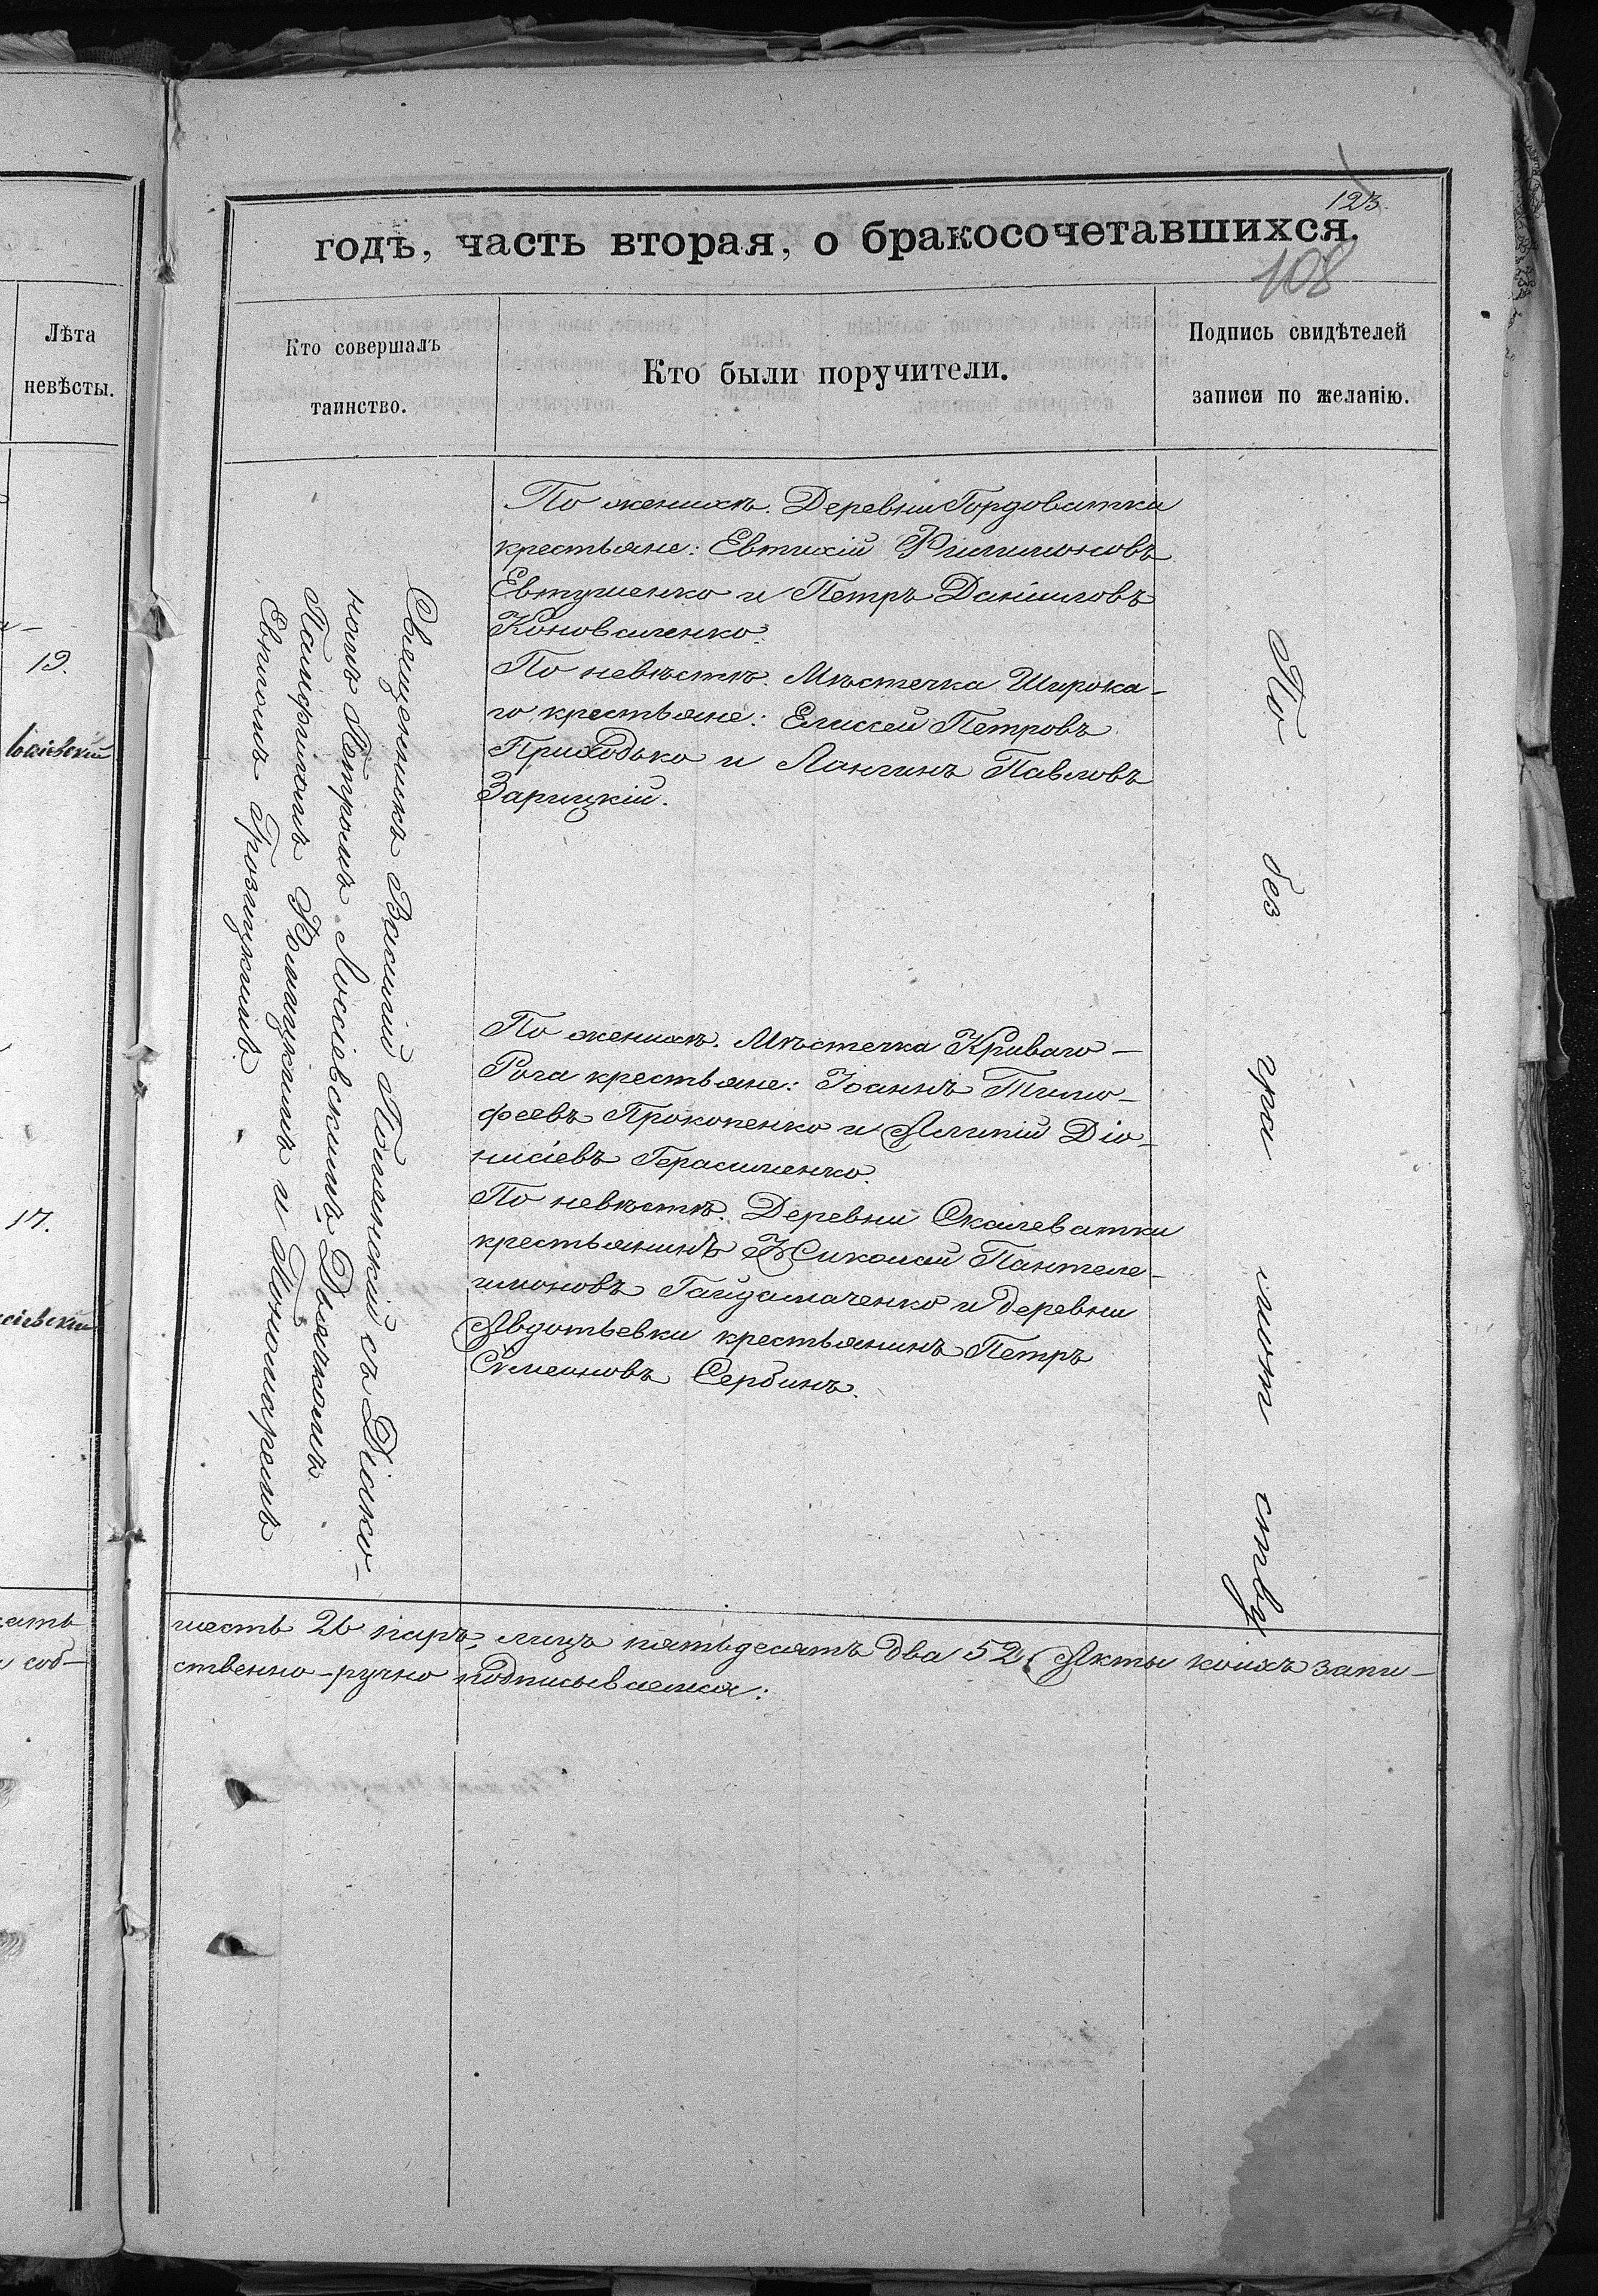 123.
годъ, часть вторая, о бракосочетавшихся.
108
Лѣта
невѣсты.
Кто совершалъ
таинство.
Кто были поручители.
Подпись свидѣтелей
записи по желанію.
19.
17.
Священникъ Василій Полянскій съ Діако-
номъ Петромъ Моссіевскимъ, Дьячкомъ
Памфиломъ и Пономаремъ
Грозицкимъ
По женихѣ. Деревни Гордоватки
крестьяне: Евтихій Филимоновъ
Евтушенко и Петръ Даніиловъ
Коноваленко.
По невѣстѣ. Мѣстечка Широка-
го крестьяне: Елисей Петровъ
Приходько и Лонгинъ Павловъ
Зарицкій.
По женихѣ. Мѣстечка Криваго-
Рога крестьяне: Іоаннъ Тимо-
феевъ Прокопенко и Алипій Діо-
нисіевъ Герасименко.
По невѣстѣ. Деревни Скалеватки
крестьянинъ Николай Пантеле-
имоновъ Гайдамаченко и деревни
Авдотьевки крестьянинъ Петръ
Сѵмеоновъ Сербинъ.
По без гра мот ству
шесть 26 паръ, лицъ пятьдесятъ два 52. Акты коихъ запи-
соб-
ственно-ручно подписываемся: